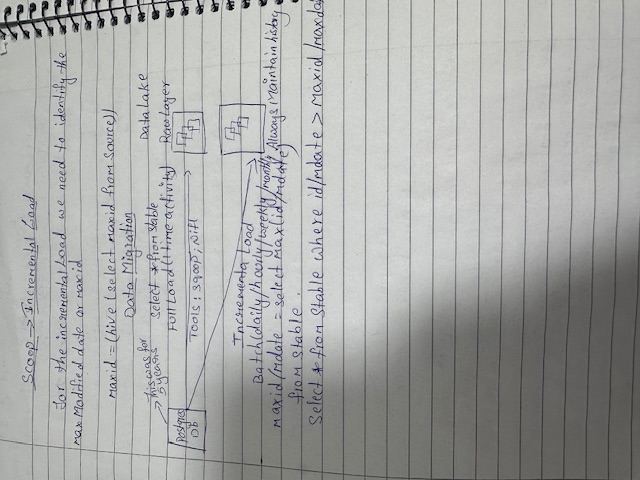 Scoop → Incremental Load
For the incremental Load we need to identify the
Max Modified date or maxid
Maxid = (hive (select maxid from Source))
Data Migration
This was for
5 years
Select * from Stable
Data Lake
Full Load (1 time activity)
Raw Layer
Postgres
Db
Tools: sqoop, Nifi
Incrementa Load
Batch (daily/hourly/weekly/monthly
Maxid/Mdate = select Max(id/mdate)
Always Maintain history
from Stable.
Select * from Stable where id/mdate > Maxid/maxda